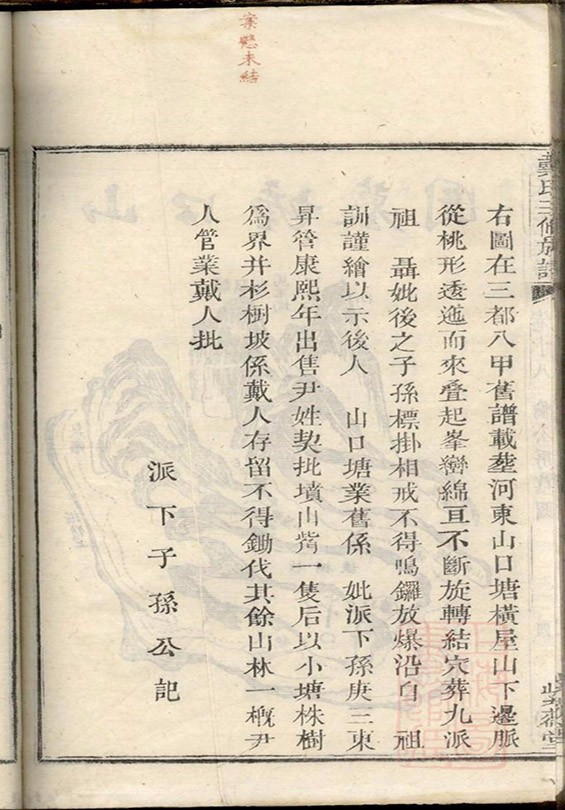 案懸未結
戴氏三修族譜
右圖在三都八甲舊譜載塟河東山口塘橫屋山下邊脈
從桃形透迤而來叠起峯巒綿亘不斷旋轉結穴葬九派
祖　聶妣後之子孫標掛相戒不得鳴鑼放爆沿自　祖
訓謹繪以示後人　山口塘業舊係　妣派下孫庚三東
昇管康熙年出售尹姓契批墳山嘴一隻后以小塘株樹
爲界并杉樹坡係戴人存留不得鋤伐其餘山林一槪尹
人管業戴人批
派下子孫公記